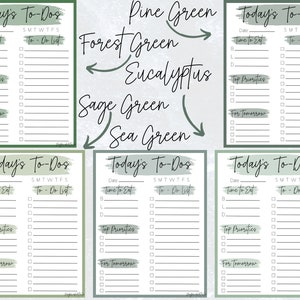 Today's To-Dos
SMTWTFS
To - Do List
Pine Green
Forest Green
Eucalyptus
Sage Green
Sea Green
Today's To-Dos
Date:
SMTWTFS
Time to Eat
To - Do List
Top Priorities
For Tomorrow
Today's To-Dos
SMTWTFS
Time to Eat
To - Do List
Top Priorities
For Tomorrow
Today's To-Dos
Date:
SMTWTFS
Time to Eat
To - Do List
Top Priorities
For Tomorrow
Today's To-Dos
Date:
SMTWTFS
Time to Eat
To - Do List
Top Priorities
For Tomorrow